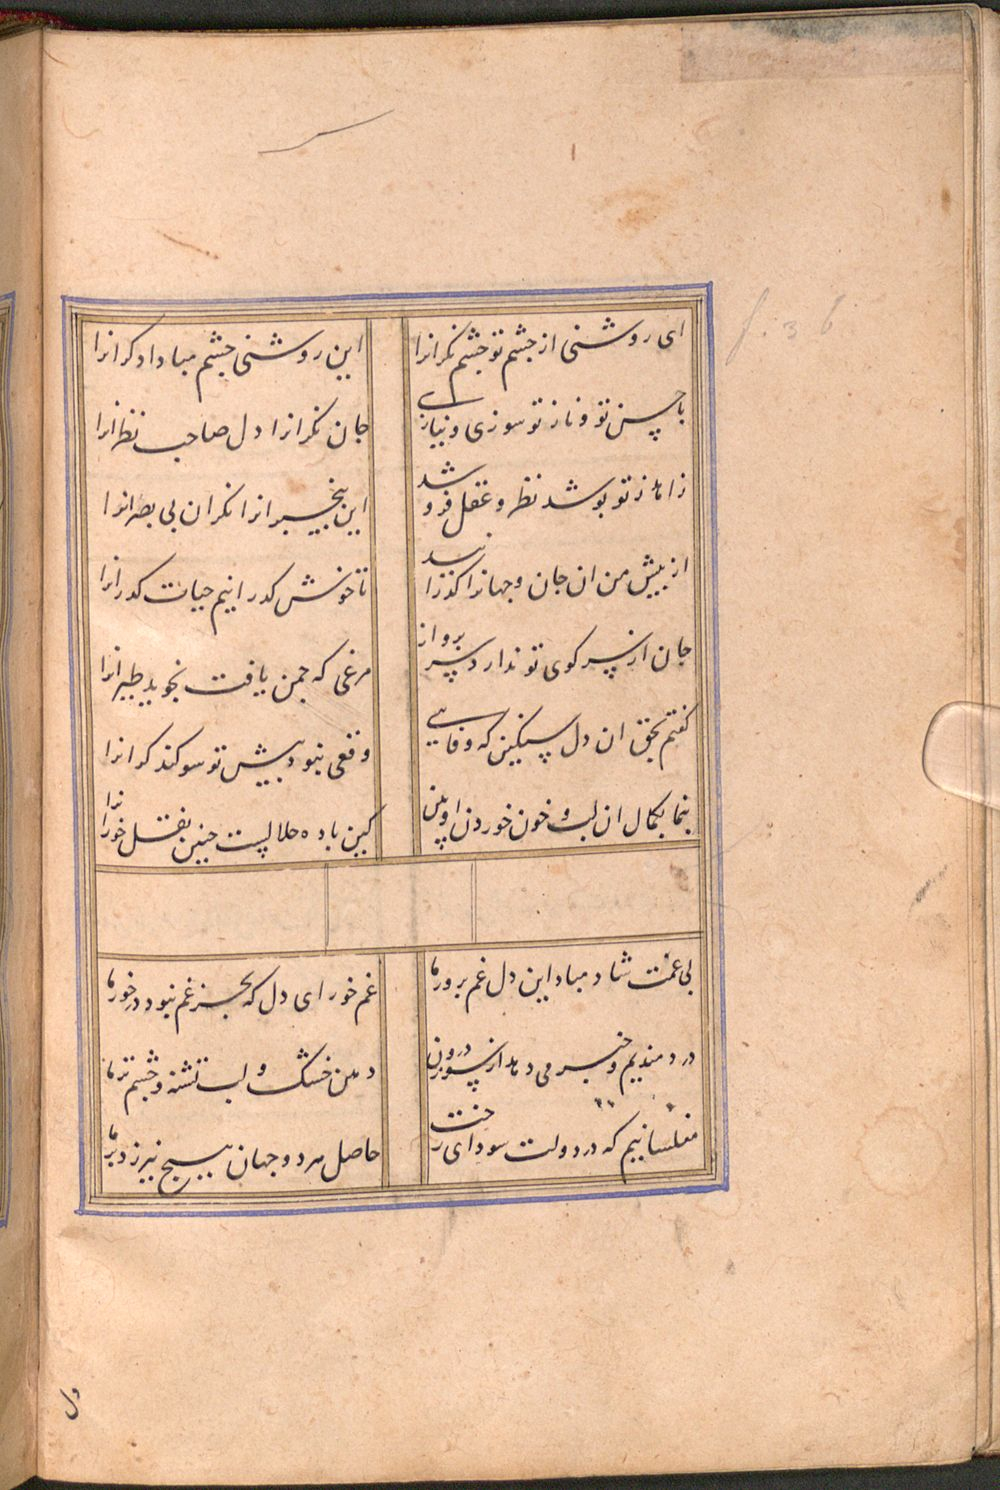 ای روشنی از چشم تو چشم نکرانرا
این روشنی چشم مبادا دکرانرا
با حسن تو و ناز تو سوزی و نیازی
جان نکرانرا دل صاحب نظرانرا
زاهد ز تو پوشد نظر و عقل فروشد
این بیخبرانرا نکران بی بصرانرا
از پیش من ان جان و جهانرا کذرانید
تا خوش کذرانیم حیات کذرانرا
جان از سر کوی تو ندارد سر پرواز
مرغی که چمن یافت نجوید طیرانرا
کفتم بحق ان دل سنکین که وفایی
وقعی نبود پیش تو سوکند کرانرا
بنما بکمال ان لب و خون خوردن او بین
کین باده حلالیست چنین نقل خورانرا
بی غمت شاد مباد این دل غم پرور ما
غم خور ای دل که بجز غم نبود در خور ما
دردمندیم و خبر می دهد از سوز درون
دهن خشک و لب تشنه و چشم تر ما
مفلسانیم که در دولت سودای رخت
حاصل هر دو جهان هیچ نیرزد بر ما
f. 36